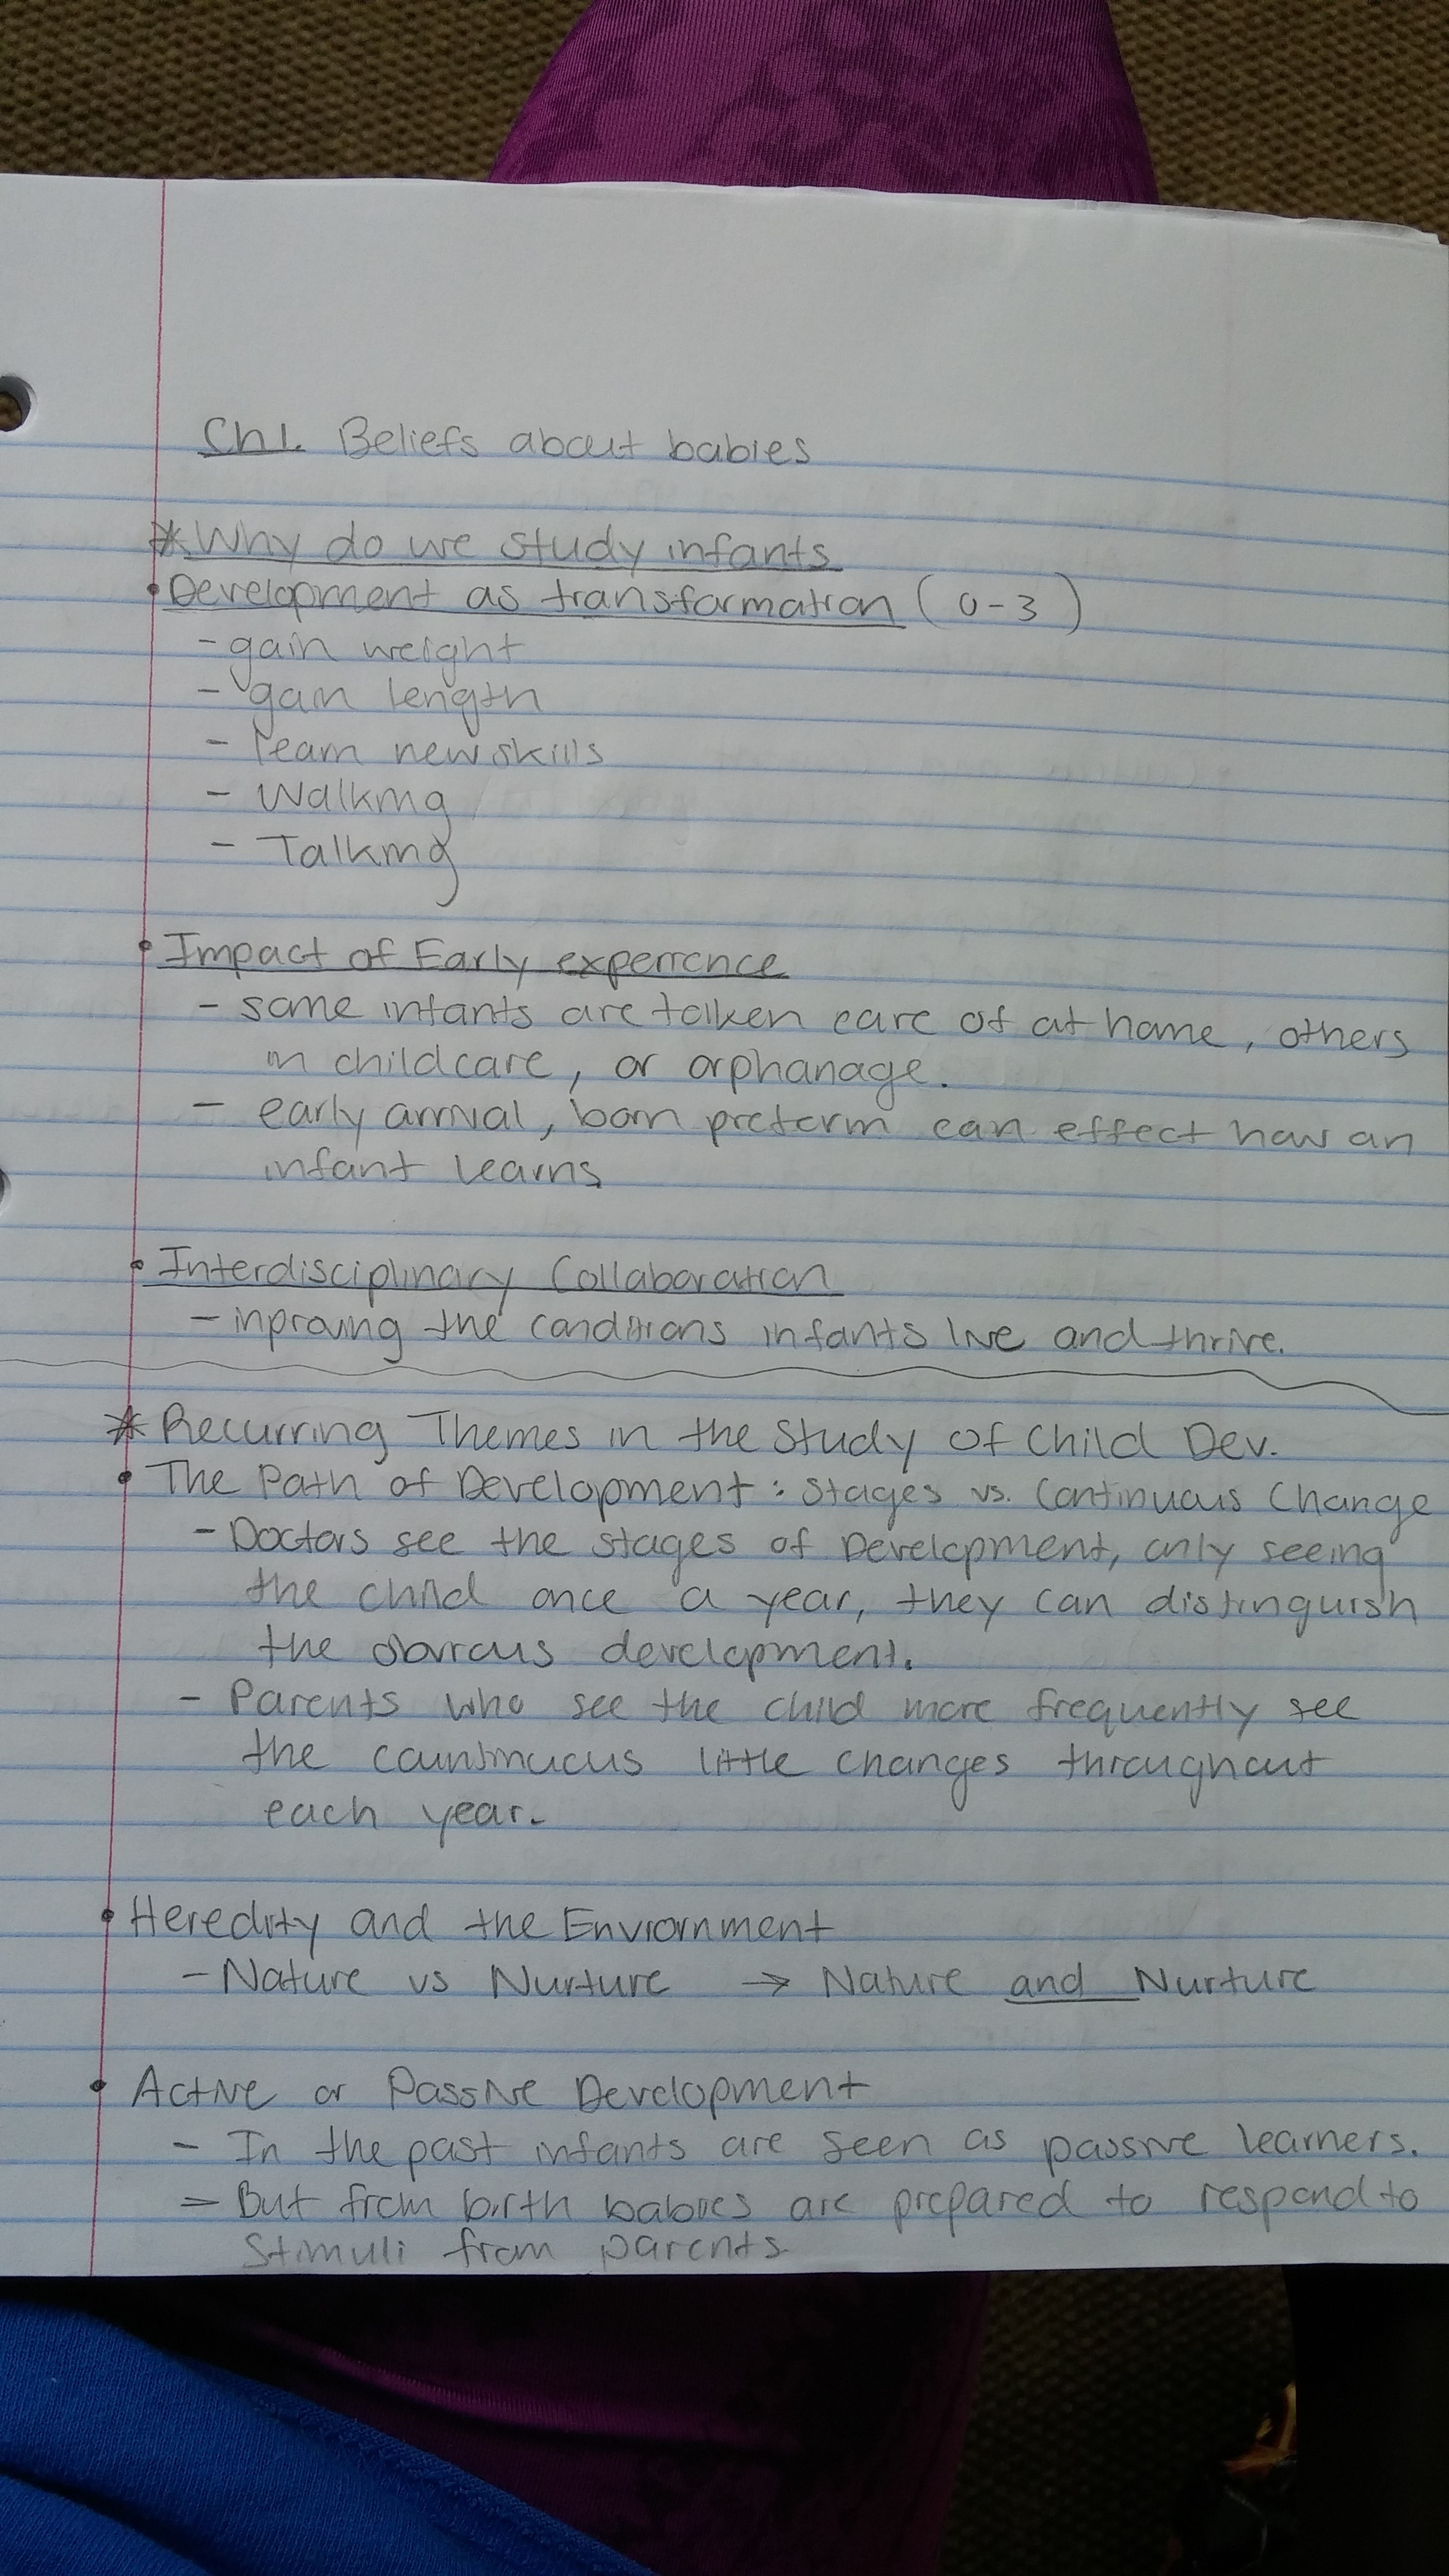 Ch 1. Beliefs about babies
* Why do we study infants
• Development as transformation (0-3)
- gain weight
- gain length
- learn new skills
- Walking
- Talking
• Impact of Early experience
- some infants are taiken care of at home, others
in childcare, or orphanage.
- early arrival, born preterm can effect how an
infant learns
• Interdisciplinary Collaboration
- inproving the conditions infants live and thrive.
* Recurring Themes in the Study of Child Dev.
• The Path of Development: Stages vs. Continuous Change
- Doctors see the stages of Development, only seeing
the child once a year, they can distinguish
the obvious development.
- Parents who see the child more frequently see
the countinuous little changes throughout
each year.
• Heredity and the Enviornment
- Nature vs Nurture → Nature and Nurture
• Active or Passive Development
- In the past infants are seen as passive learners.
- But from birth babies are prepared to respond to
stimuli from parents